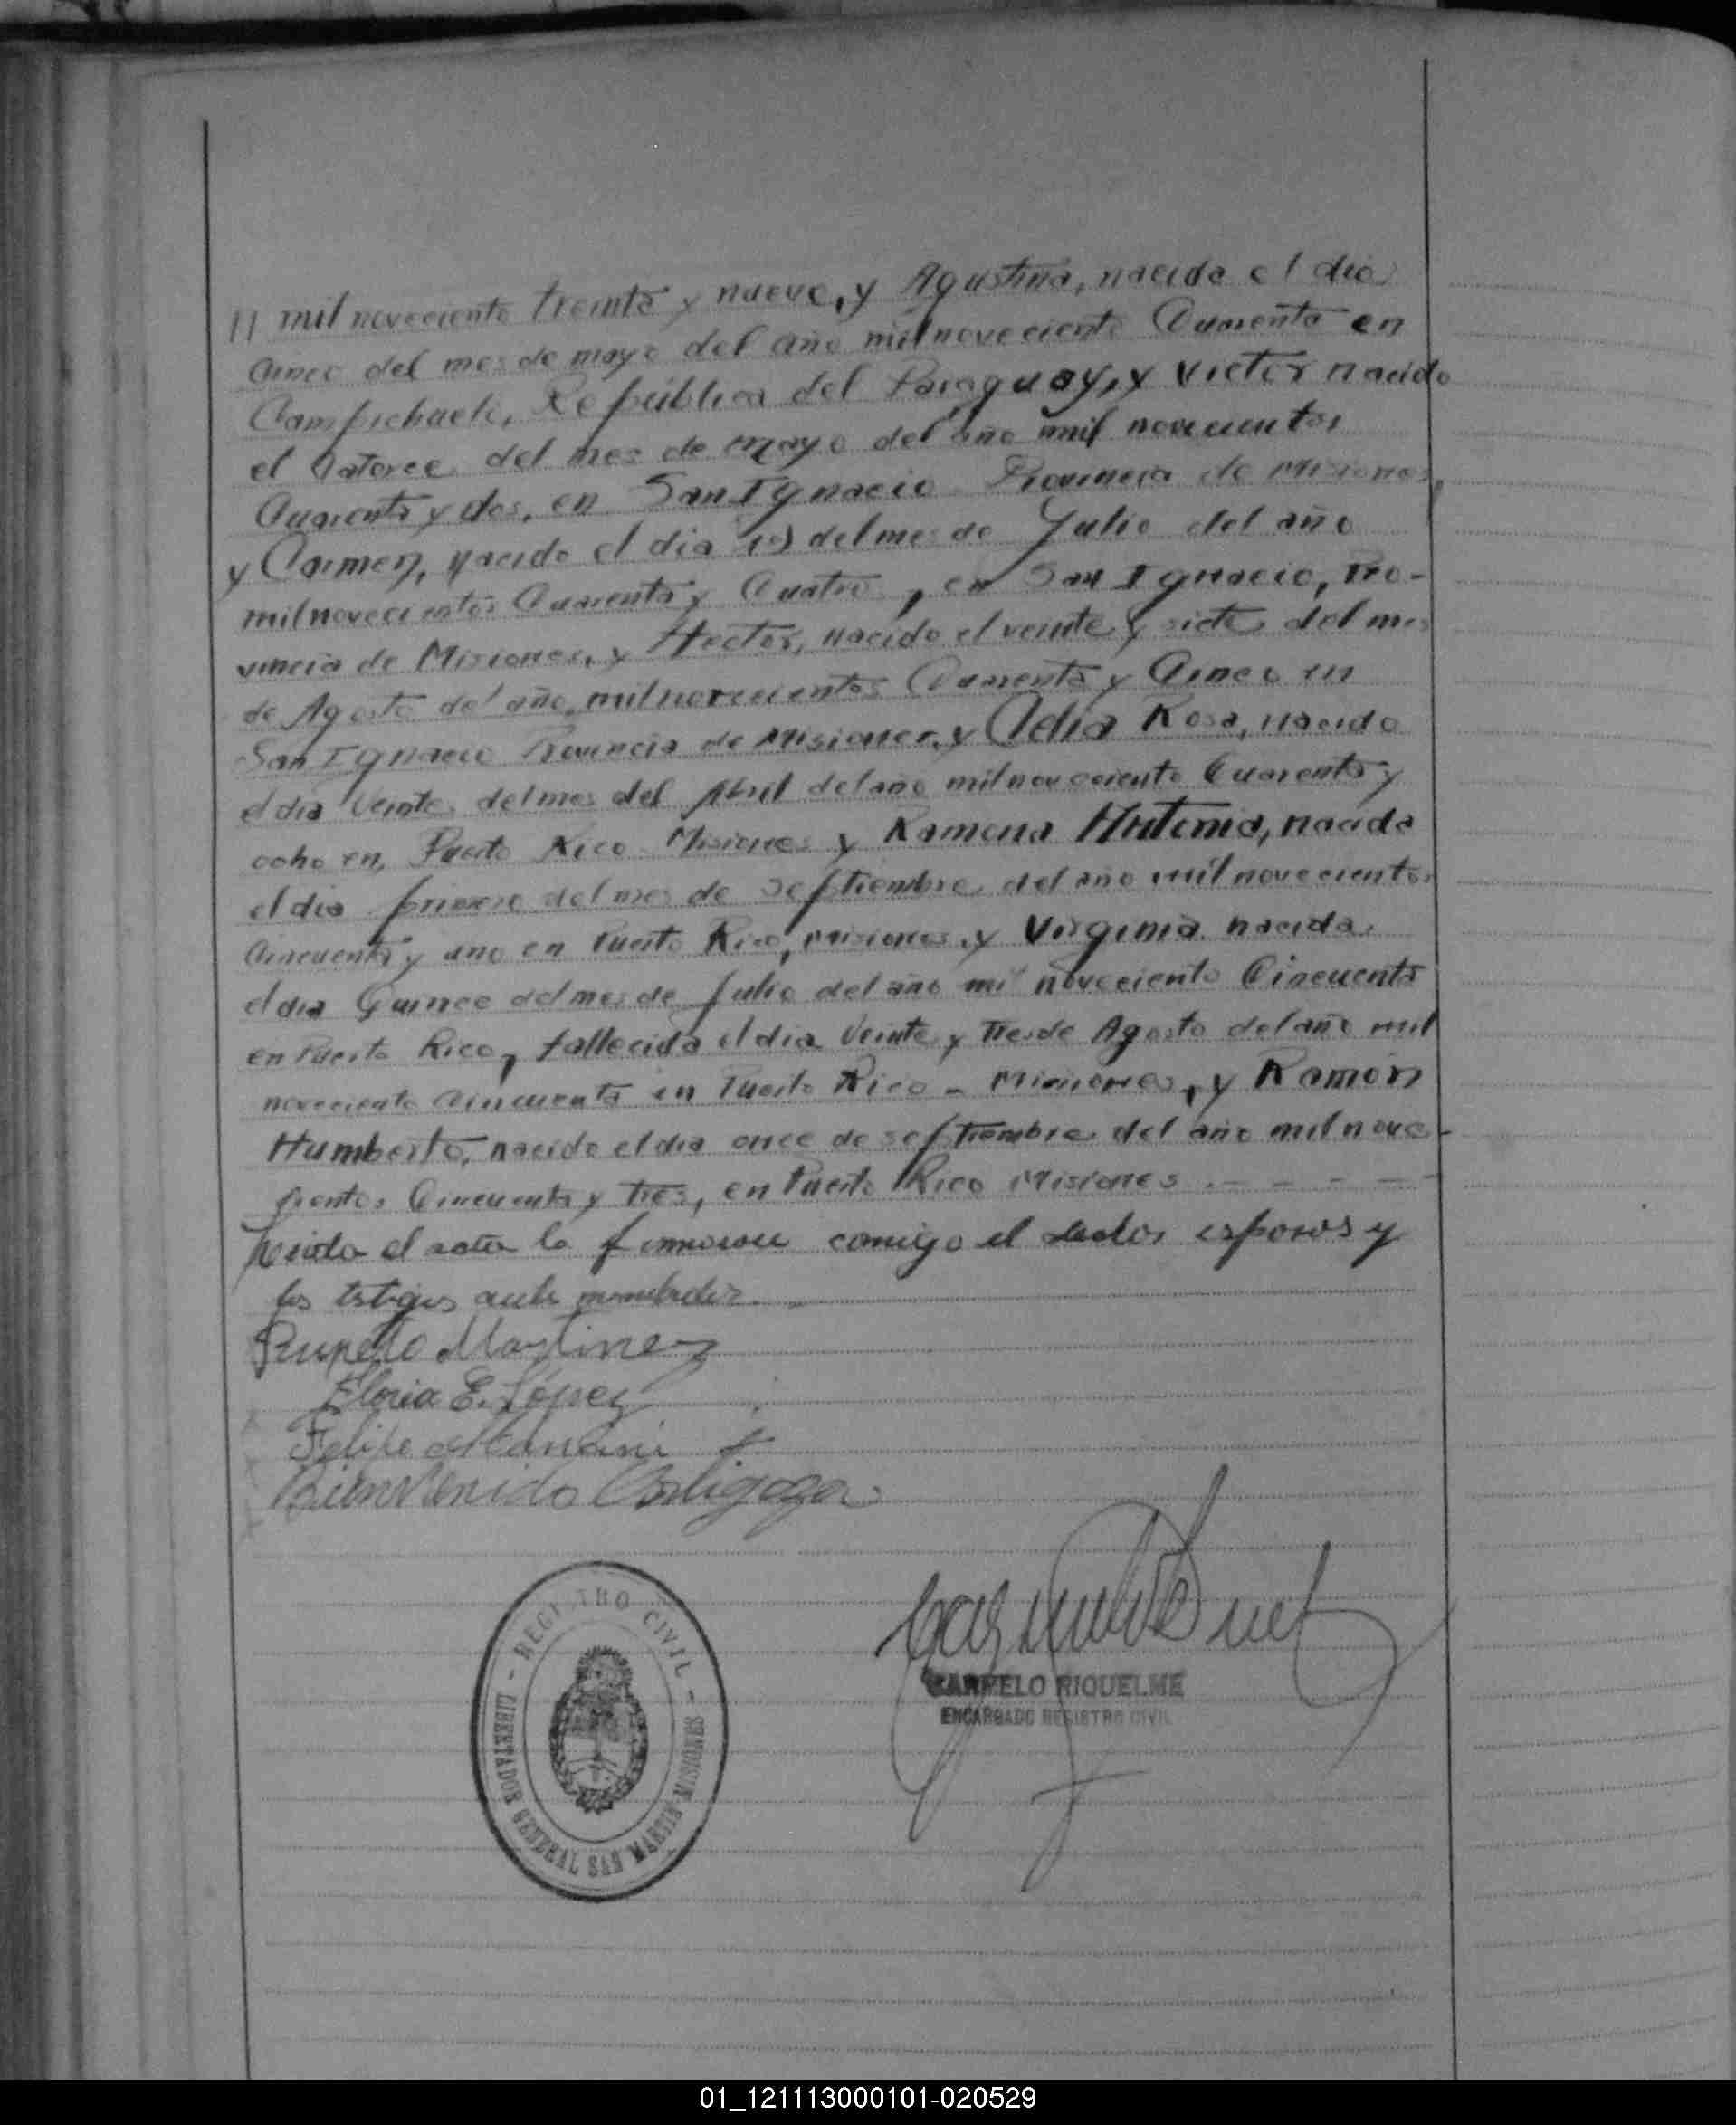 // mil noveciento treinta y nueve, y Agustina, nacida el dia
Cinco del mes de mayo del año mil noveciento Cuarenta en
Campichuelo, República del Paraguay, y Victor nacido
el Catorce del mes de mayo del año mil novecientos
Cuarenta y dos, en San Ignacio Provincia de Misiones,
y Carmen, nacido el dia del mes de Julio del año
mil novecientos Cuarenta y Cuatro, en San Ignacio, Pro-
vincia de Misiones, y Hector, nacido el veinte y siete del mes
de Agosto del año mil novecientos Cuarenta y Cinco en
San Ignacio Provincia de Misiones, y Celia Rosa, nacido
el dia Veinte del mes del Abril del año mil noveciento Cuarenta y
ocho en, Puerto Rico Misiones y Ramona Antonia, nacida
el dia primero del mes de Septiembre del año mil novecientos
Cincuenta y uno en Puerto Rico, Misiones, y Virginia nacida
el dia Quince del mes de Julio del año mil noveciento Cincuenta
en Puerto Rico, fallecida el dia Veinte y Tres de Agosto del año mil
noveciento Cincuenta en Puerto Rico - Misiones, y Ramón
Humberto, nacido el dia once de septiembre del año mil nove-
cientos Cincuenta y Tres, en Puerto Rico Misiones . - - - - -
Leida el acta la firmaron conmigo el esposos y
los testigos ante nombrados.
Martinez
E. López
Felipe
Bienvenido
REGISTRO CIVIL
LIBERTADOR GENERAL SAN MARTIN MISIONES
CARMELO RIQUELME
ENCARGADO REGISTRO CIVIL
01_121113000101-020529